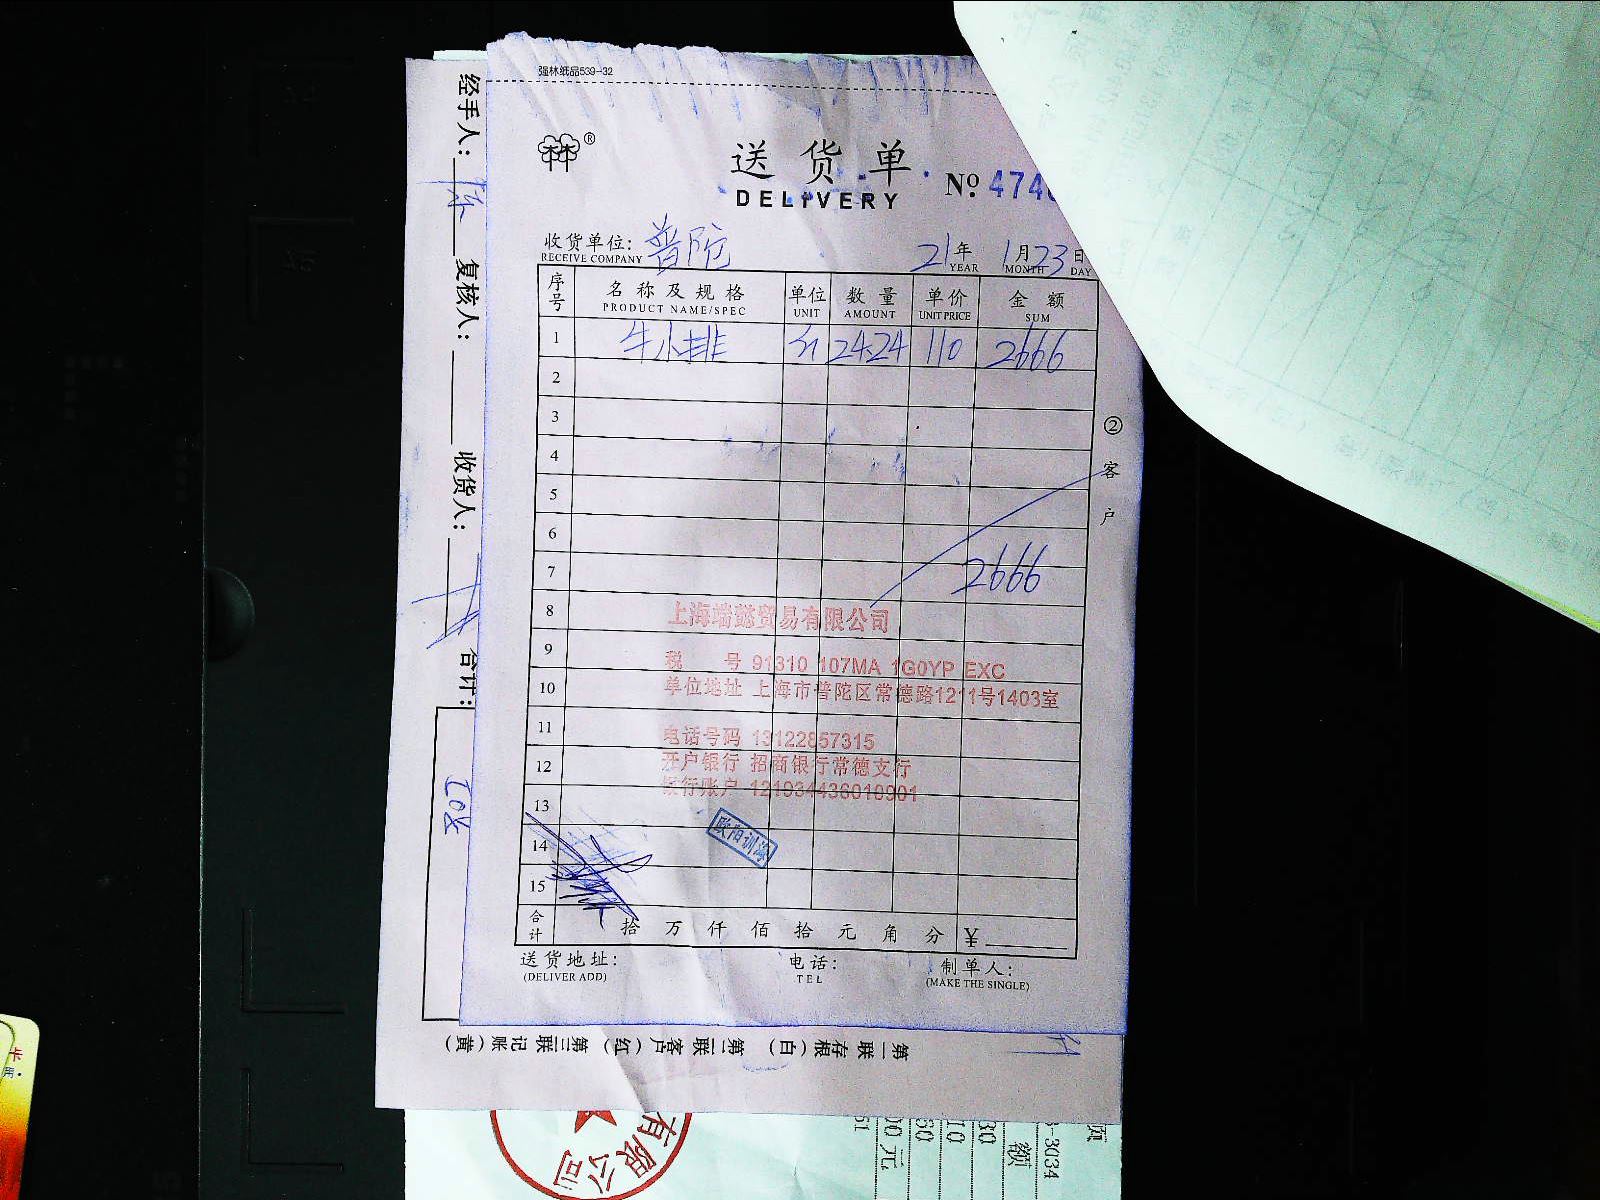 强林纸品539-32
林®
送货单
DELIVERY
№ 474
收货单位: 普陀
RECEIVE COMPANY
21年 1月23日
YEAR MONTH DAY
序号 名称及规格 单位 数量 单价 金额
PRODUCT NAME/SPEC UNIT AMOUNT UNIT PRICE SUM
1 牛小排 24.24 110 2666
2
3
4
5
6
7 2666
8
9
10
11
12
13
14
15
上海端懿贸易有限公司
税 号 91310 107MA 1G0YP EXC
单位地址 上海市普陀区常德路1211号1403室
电话号码 13122857315
开户银行 招商银行常德支行
银行账户 121934436010901
欧阳训海
合计 拾 万 仟 佰 拾 元 角 分 ¥
送货地址: 电话: 制单人:
(DELIVER ADD) TEL (MAKE THE SINGLE)
②客户
经手人: 陈 复核人: 收货人: 合计:
第一联 存根(白) 第二联 客户(红) 第三联 记账(黄)
有限公司
-3034
额
30
10
60
00元
51